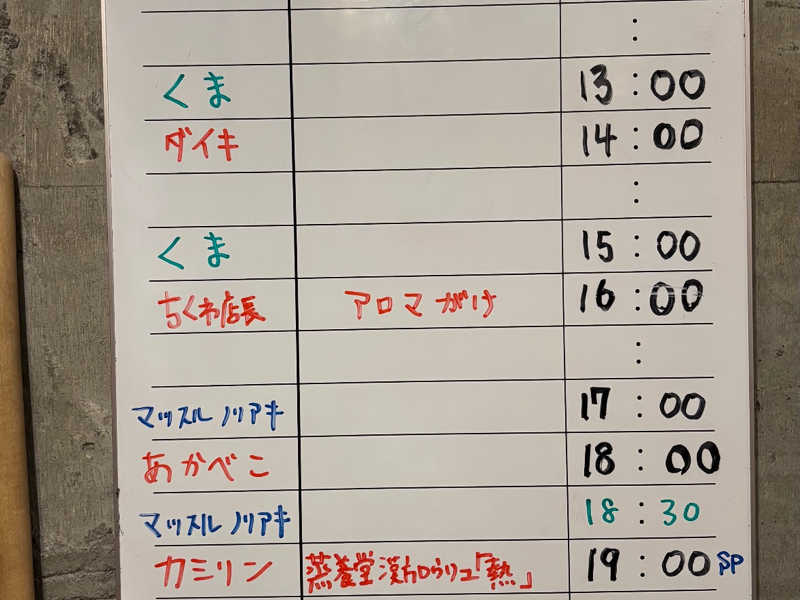 :
くま 13:00
ダイキ 14:00
:
くま 15:00
ちくわ店長 アロマがけ 16:00
:
マッスルノリアキ 17:00
あかべこ 18:00
マッスルノリアキ 18:30
カミリン 蒸養堂漢方ロウリュ「熱」 19:00 SP